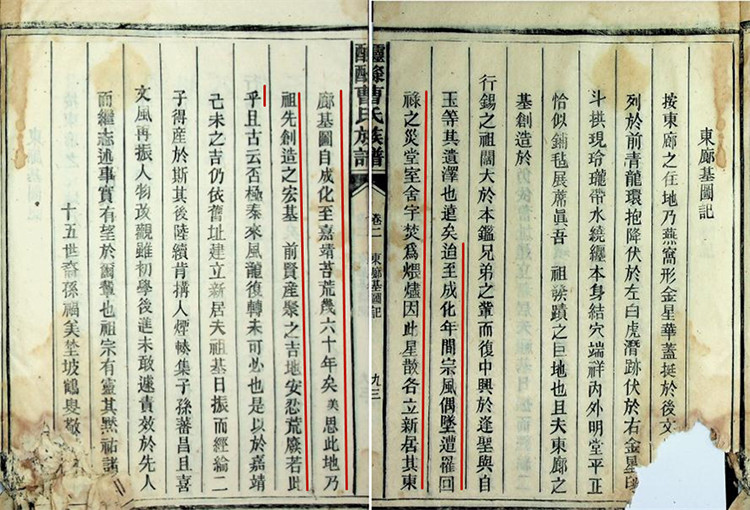 東廊基圖記
按東廊之住地乃燕窩形金星華蓋挺於後文
列於前青龍環抱降伏於左白虎潛跡伏於右金星印
斗拱現玲瓏帶水繞纏本身結穴端祥內外明堂平正
恰似鋪毡展席眞吾 祖謨蹟之巨地也且夫東廊之
基創造於
行錫之祖闊大於本鑑兄弟之輩而復中興於逢聖與自
玉等其遺澤也遠矣迨至成化年間宗風偶墜遭罹回
祿之災堂室舍宇焚爲煨燼因此星散各立新居其東
曹氏族譜
卷二
東廊基圖記
九三
廊基圖自成化至嘉靖苦荒幾六十年矣美恩此地乃
祖先創造之宏基 前賢産聚之吉地安忍荒廢若此
乎且古云否極泰來風龍復轉未可必也是以於嘉靖
己未之吉仍依舊址建立新居夫祖基日振而經綸二
子得産於斯其後陸續肯搆人煙輳集子孫蕃昌且喜
文風再振人物改觀雖初學後進未敢遽責效於先人
而繼志述事實有望於爾輩也祖宗有靈其默祐諸
十五世裔孫福美埜坡嶋叟敬